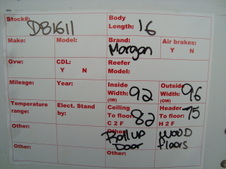 Stock#: DB1611
Body Length: 16
Make: Model: Brand: Morgan Air brakes: Y N
Gvw: CDL: Y N Reefer Model:
Mileage: Year: Inside Width: (OW) 92 Outside Width: (OW) 96
Temperature range: Elect. Stand by: Ceiling To floor: C 2 F 82 Header To floor: H 2 F 75
Other: Other: Other: Rollup Door Other: WOOD floors